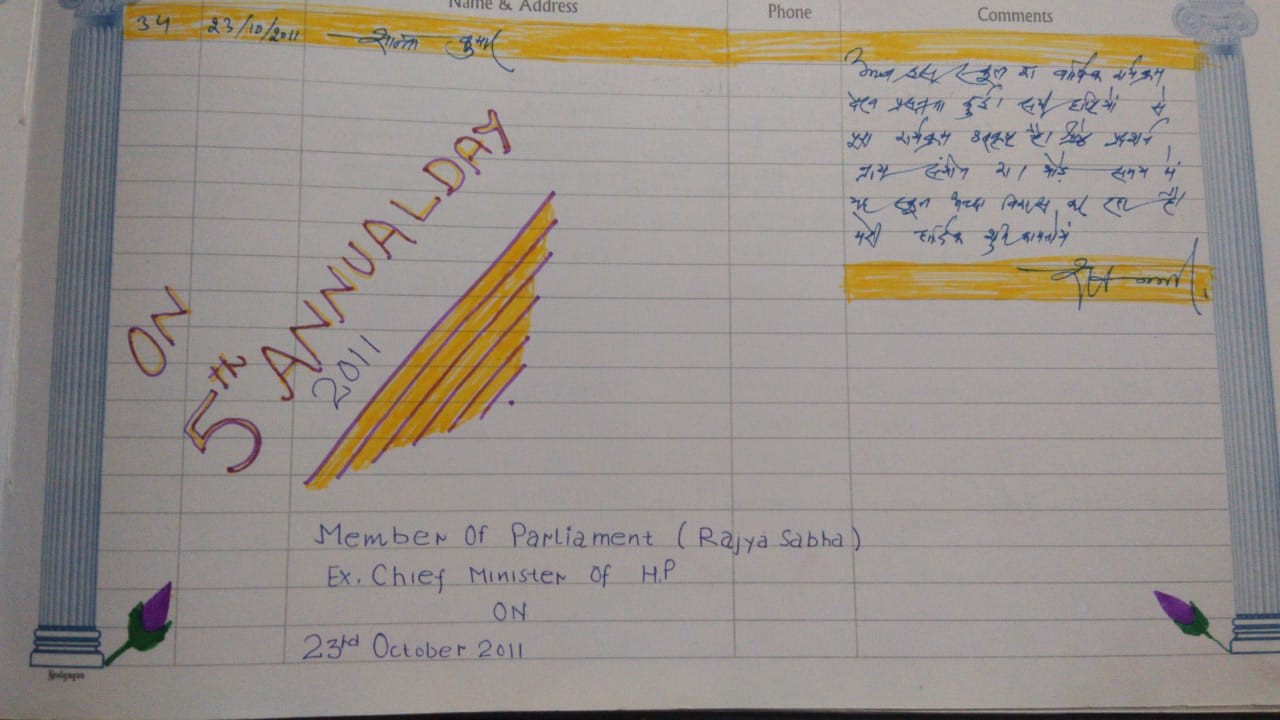 Name & Address
Phone
Comments
34 23/10/2011 शान्ता कुमार
आज इस स्कूल का वार्षिक कार्यक्रम
देख प्रसन्नता हुई। सभी दृष्टियों से
पूरा कार्यक्रम उत्कृष्ट है।
संगीत था। थोड़े समय में
यह स्कूल अच्छा विकास कर रहा है।
मेरी हार्दिक शुभ कामनाएं
ON
5th ANNUAL DAY
2011
Member Of Parliament (Rajya Sabha)
Ex. Chief Minister Of H.P
ON
23rd October 2011
Neelgagan